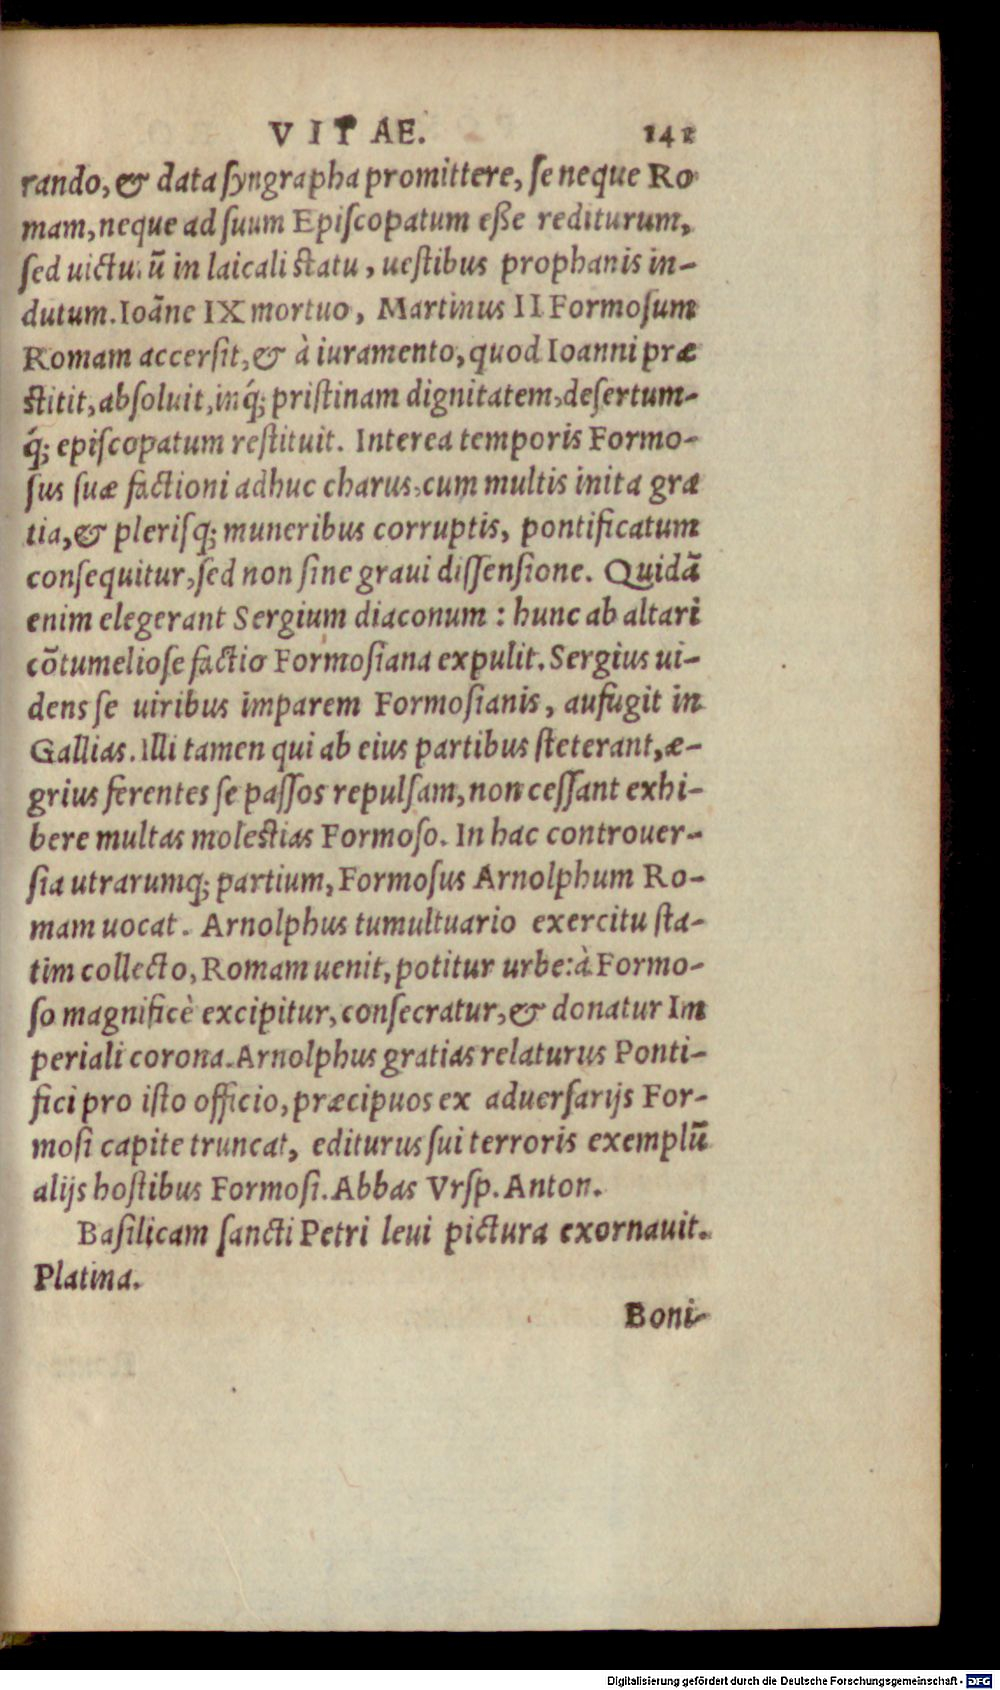 VITAE. 141
rando, & data ſyngrapha promittere, ſe neque Ro
mam, neque ad ſuum Epiſcopatum eſſe rediturum,
ſed uictuꝛū in laicali ſtatu, ueſtibus prophanis in-
dutum. Ioāne IX mortuo, Martinus II Formoſum
Romam accerſit, & à iuramento, quod Ioanni præ
ſtitit, abſoluit, inq́; priſtinam dignitatem, deſertum-
q́; epiſcopatum reſtituit. Interea temporis Formo-
ſus ſuæ factioni adhuc charus, cum multis inita gra
tia, & pleriſq; muneribus corruptis, pontificatum
conſequitur, ſed non ſine graui diſſenſione. Quidā
enim elegerant Sergium diaconum : hunc ab altari
cōtumelioſe factio Formoſiana expulit. Sergius ui-
dens ſe uiribus imparem Formoſianis, aufugit in
Gallias. Illi tamen qui ab eius partibus ſteterant, æ-
grius ferentes ſe paſſos repulſam, non ceſſant exhi-
bere multas moleſtias Formoſo. In hac controuer-
ſia utrarumq; partium, Formoſus Arnolphum Ro-
mam uocat. Arnolphus tumultuario exercitu ſta-
tim collecto, Romam uenit, potitur urbe: à Formo-
ſo magnificè excipitur, conſecratur, & donatur Im
periali corona. Arnolphus gratias relaturus Ponti-
fici pro iſto officio, præcipuos ex aduerſarijs For-
moſi capite truncat, editurus ſui terroris exemplū
alijs hoſtibus Formoſi. Abbas Vrſp. Anton.
Baſilicam ſancti Petri leui pictura exornauit.
Platina.
Boni-
Digitalisierung gefördert durch die Deutsche Forschungsgemeinschaft - DFG